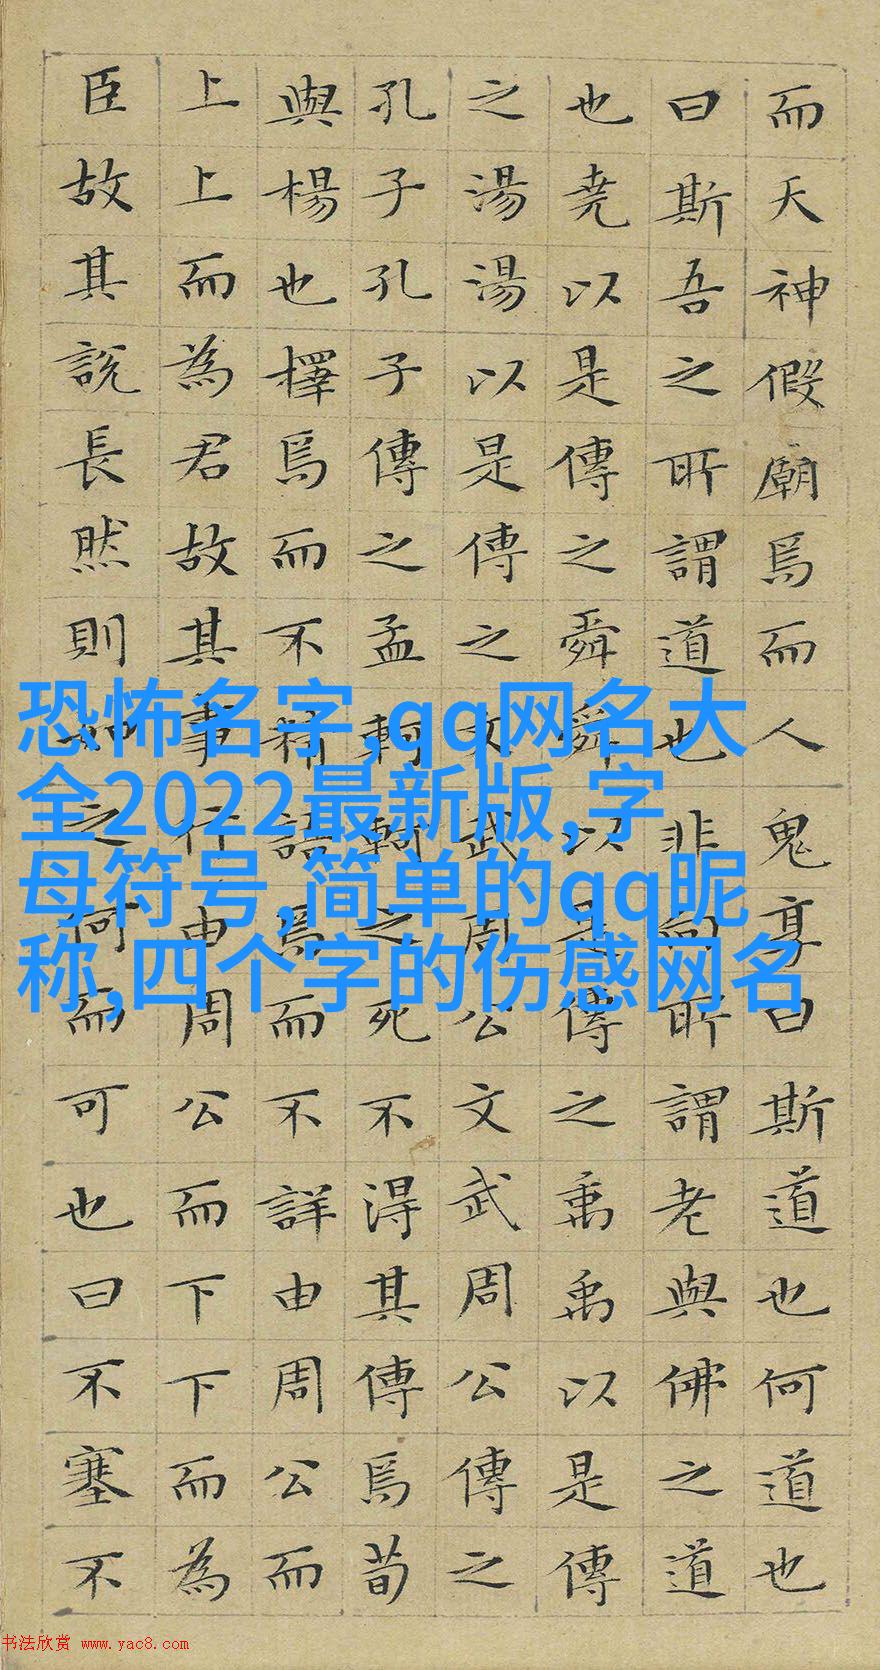 而天神假廟焉而人鬼享曰斯道也何道也
曰斯吾之所謂道也非向所謂老與佛之道
也堯以是傳之舜舜以是傳之禹禹以是傳
之湯湯以是傳之文武周公文武周公傳之
孔子孔子傳之孟軻軻之死不得其傳焉荀
與楊也擇焉而不精語焉而不詳由周公而
上上而為君故其事行由周公而下下而為
臣故其說長然則如之何而可也曰不塞不
恐怖名字,qq网名大
全2022最新版,字
母符号,简单的qq昵
称,四个字的伤感网名
书法欣赏 www.yac8.com